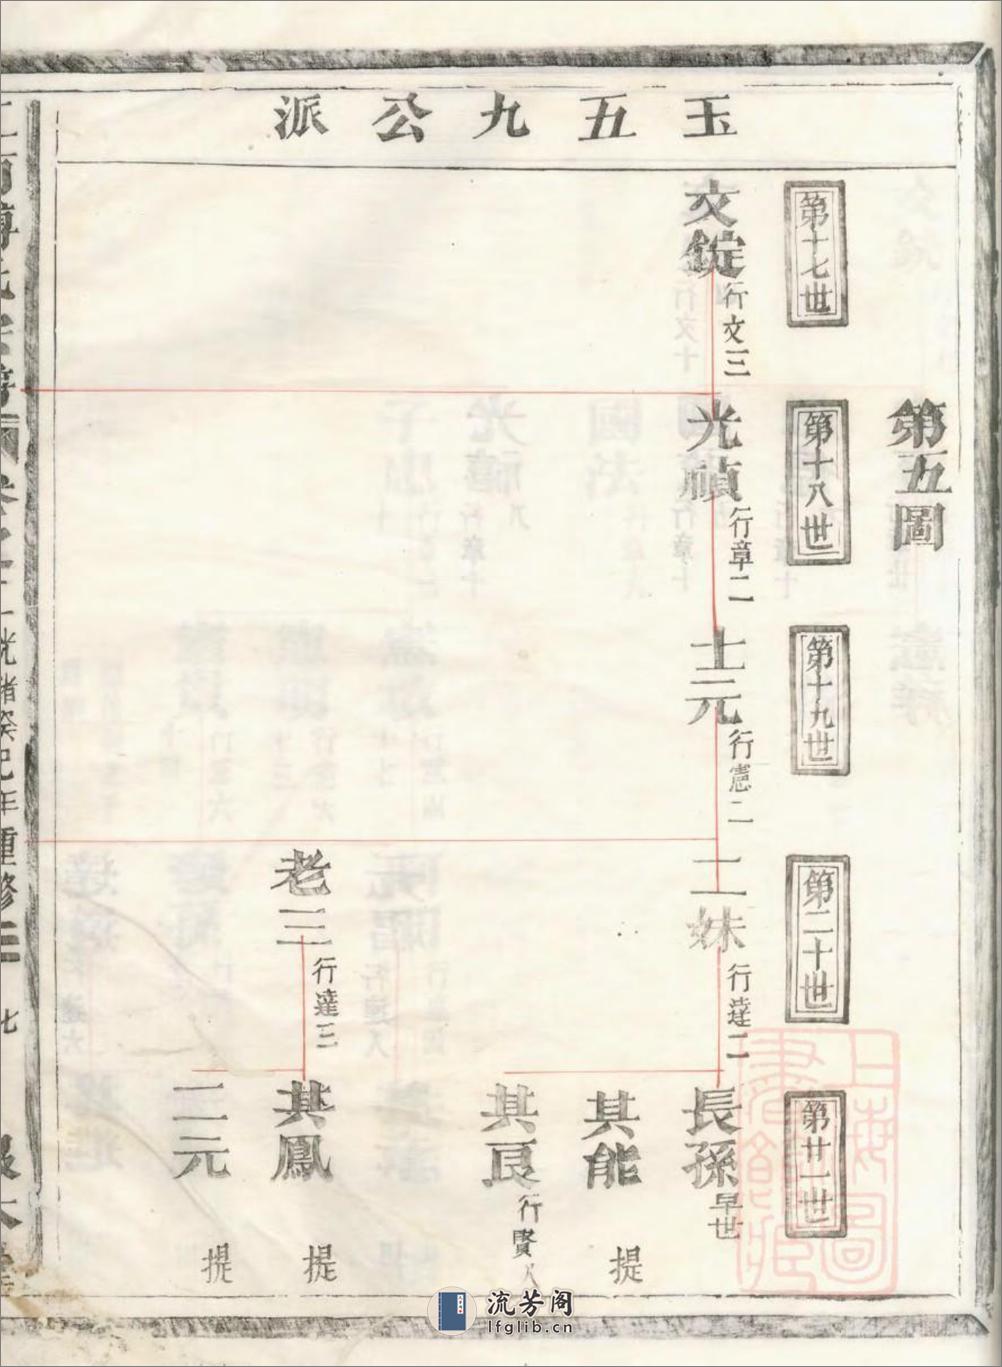 玉五九公派
第五圖
第十七世
第十八世
第十九世
第二十世
第廿一世
文錠 行文三
光禎 行章二
士元 行憲二
二妹 行達二
長孫 早世
其能 提
其良 行賢八
老三 行達三
其鳳 提
二元 提
光緒癸巳年重修
七
上海圖書館藏
流芳阁
lfglib.cn